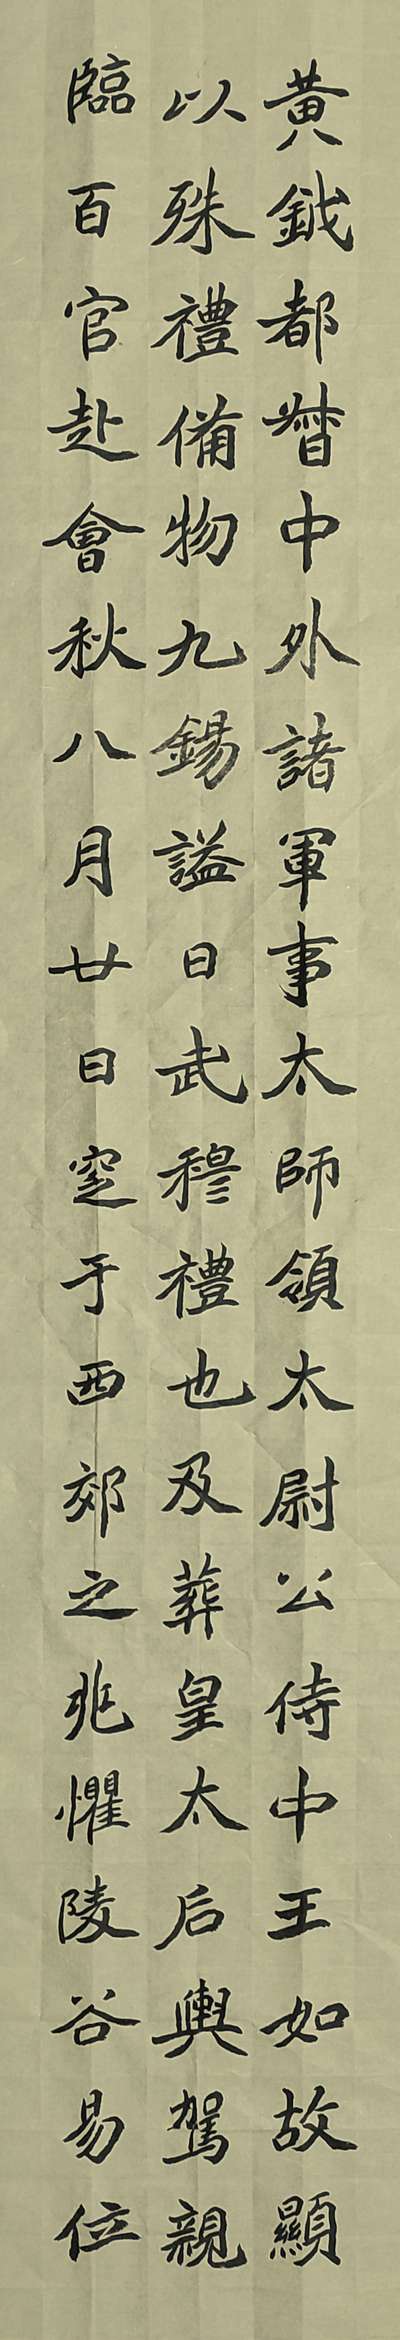 黄鉞都督中外諸軍事太師領太尉公侍中王如故顯
以殊禮備物九錫謚曰武穆禮也及葬皇太后輿駕親
臨百官赴會秋八月廿日窆于西郊之兆懼陵谷易位